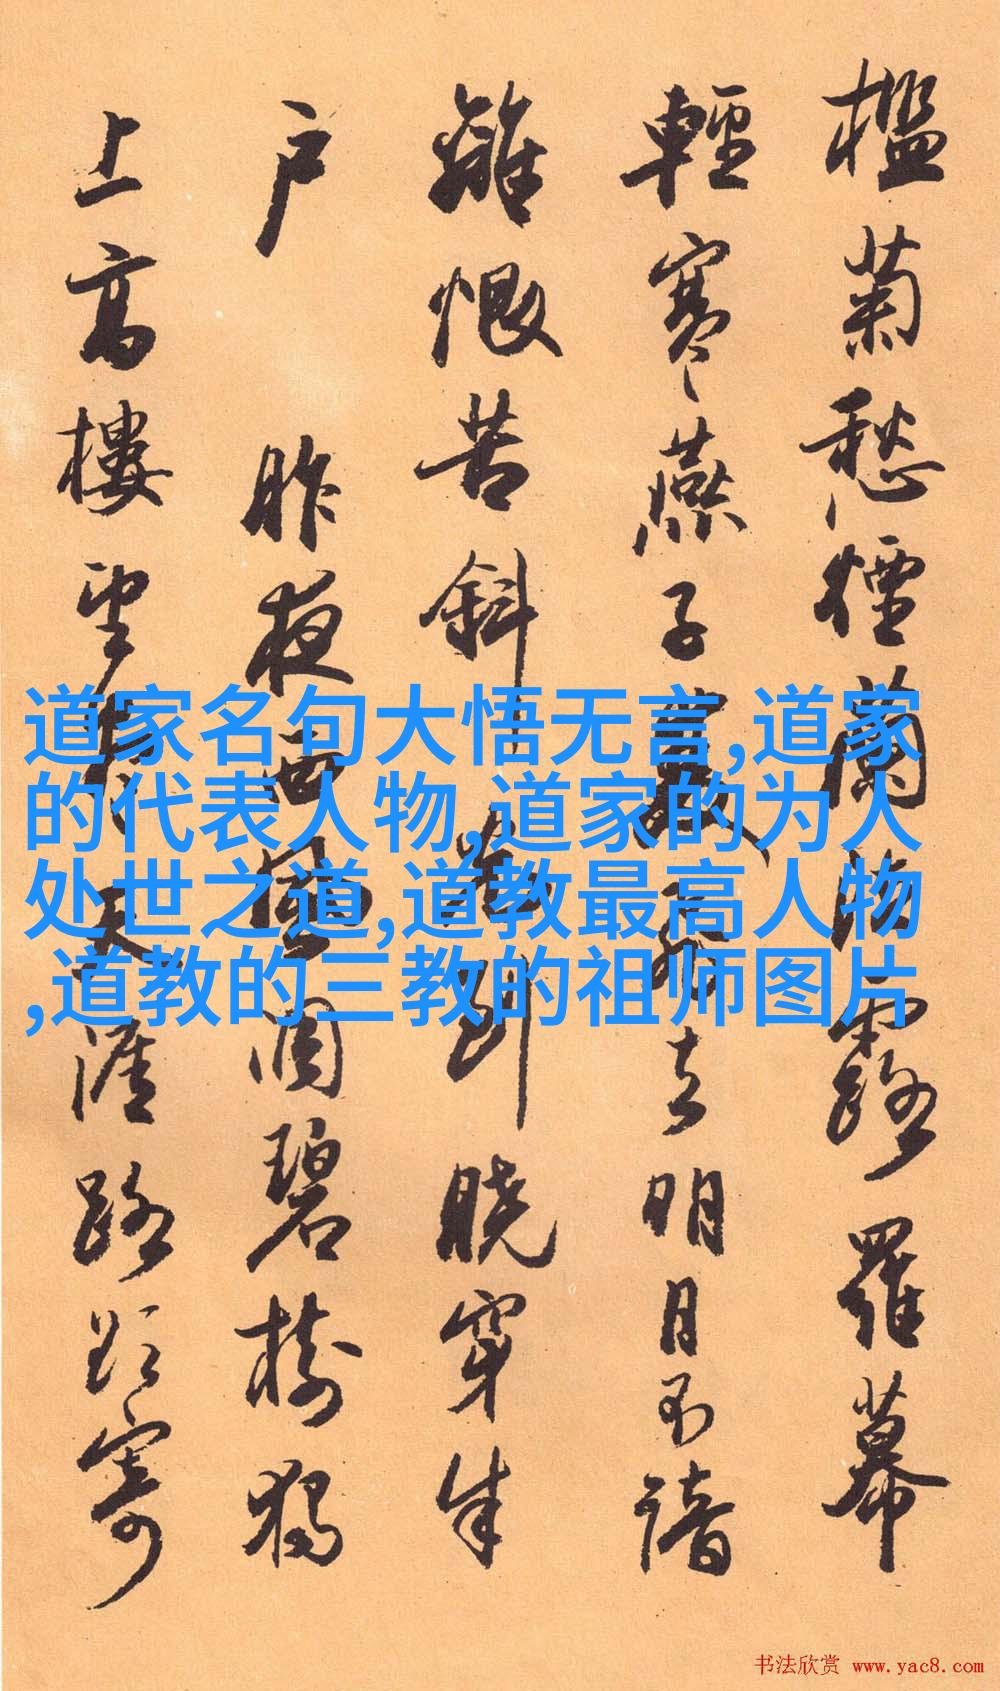 檻菊愁煙蘭泣露羅幕
輕寒燕子雙飛去明月不諳
離恨苦斜光到曉穿朱
户 昨夜西風凋碧樹獨
上高樓望盡天涯路欲寄
道家名句大悟无言,道家
的代表人物,道家的为人
处世之道,道教最高人物
,道教的三教的祖师图片
书法欣赏 www.yac8.com